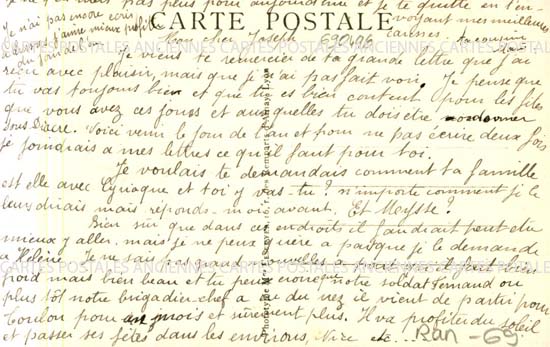 ne y en mais pas plus pour aujourd'hui et je te quitte en t'en
voyant mes meilleures
J'n'ai pas encore écris
CARTE POSTALE
j'aime mieux
caresses. ta cousine
du jour de l'an
Mon cher Joseph 690406
Je viens te remercier de ta grande lettre que j'ai
reçu avec plaisir, mais que je n'ai pas fait voir. Je pense que
tu vas toujours bien et que tu es bien content pour les fêtes
que vous avez ces jours et auxquelles tu dois être
sous Diacre. Voici venir le jour de l'an et pour ne pas écrire deux fois
je joindrais a mes lettres ce qu'il faut pour toi.
Je voulais te demandais comment ta famille
est elle avec Cyriaque et toi y vas-tu? n'importe comment je le
leur dirais mais réponds-moi avant. Et
Bien sur que dans ces endroits il faudrait peut etre
mieux y aller. mais je ne peux guère a pas que je le demande
a Hélène. Je ne sais pas grand nouvelles a part que il fait bien
froid mais bien beau et tu peux croire que notre soldat Fernand ou
plus tôt notre brigadier-chef a eu du nez il vient de partir pour
Toulon pour un mois et surement plus. Il va profiter du soleil
et passer ses fêtes dans les environs, Nice etc...
Ran-69
CARTES POSTALES ANCIENNES CARTES POSTALES ANCIENNES